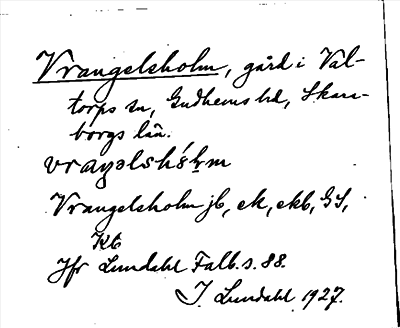 Vrangelsholm, gård i Val-
torps sn, Gudhems hd, Skara-
borgs län.
vraŋəlshɷ́l̥m
Vrangelsholm jb, ek, ekb, GS,
Kb
Jfr Lundahl Falb. s. 88.
I. Lundahl 1927.